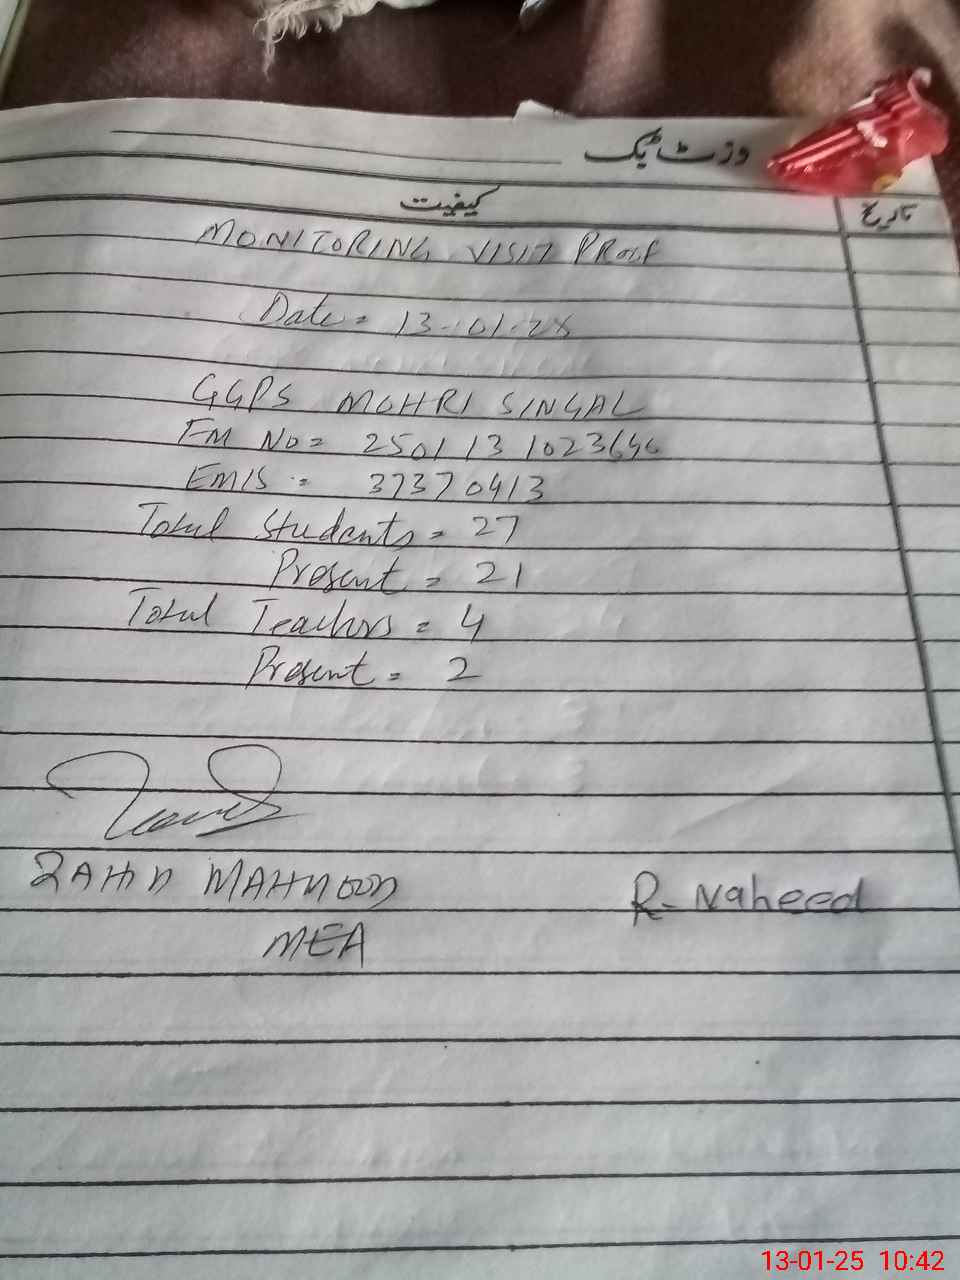 وزٹ بک
کیفیت
تاریخ
MONITORING VISIT PROOF
Date = 13-01-25
GGPS MOHRI SINGAL
FM No = 2501131023646
EMIS = 37370413
Total Students = 27
Present = 21
Total Teachers = 4
Present = 2
ZAHID MAHMOOD
R-Naheed
MEA
13-01-25 10:42